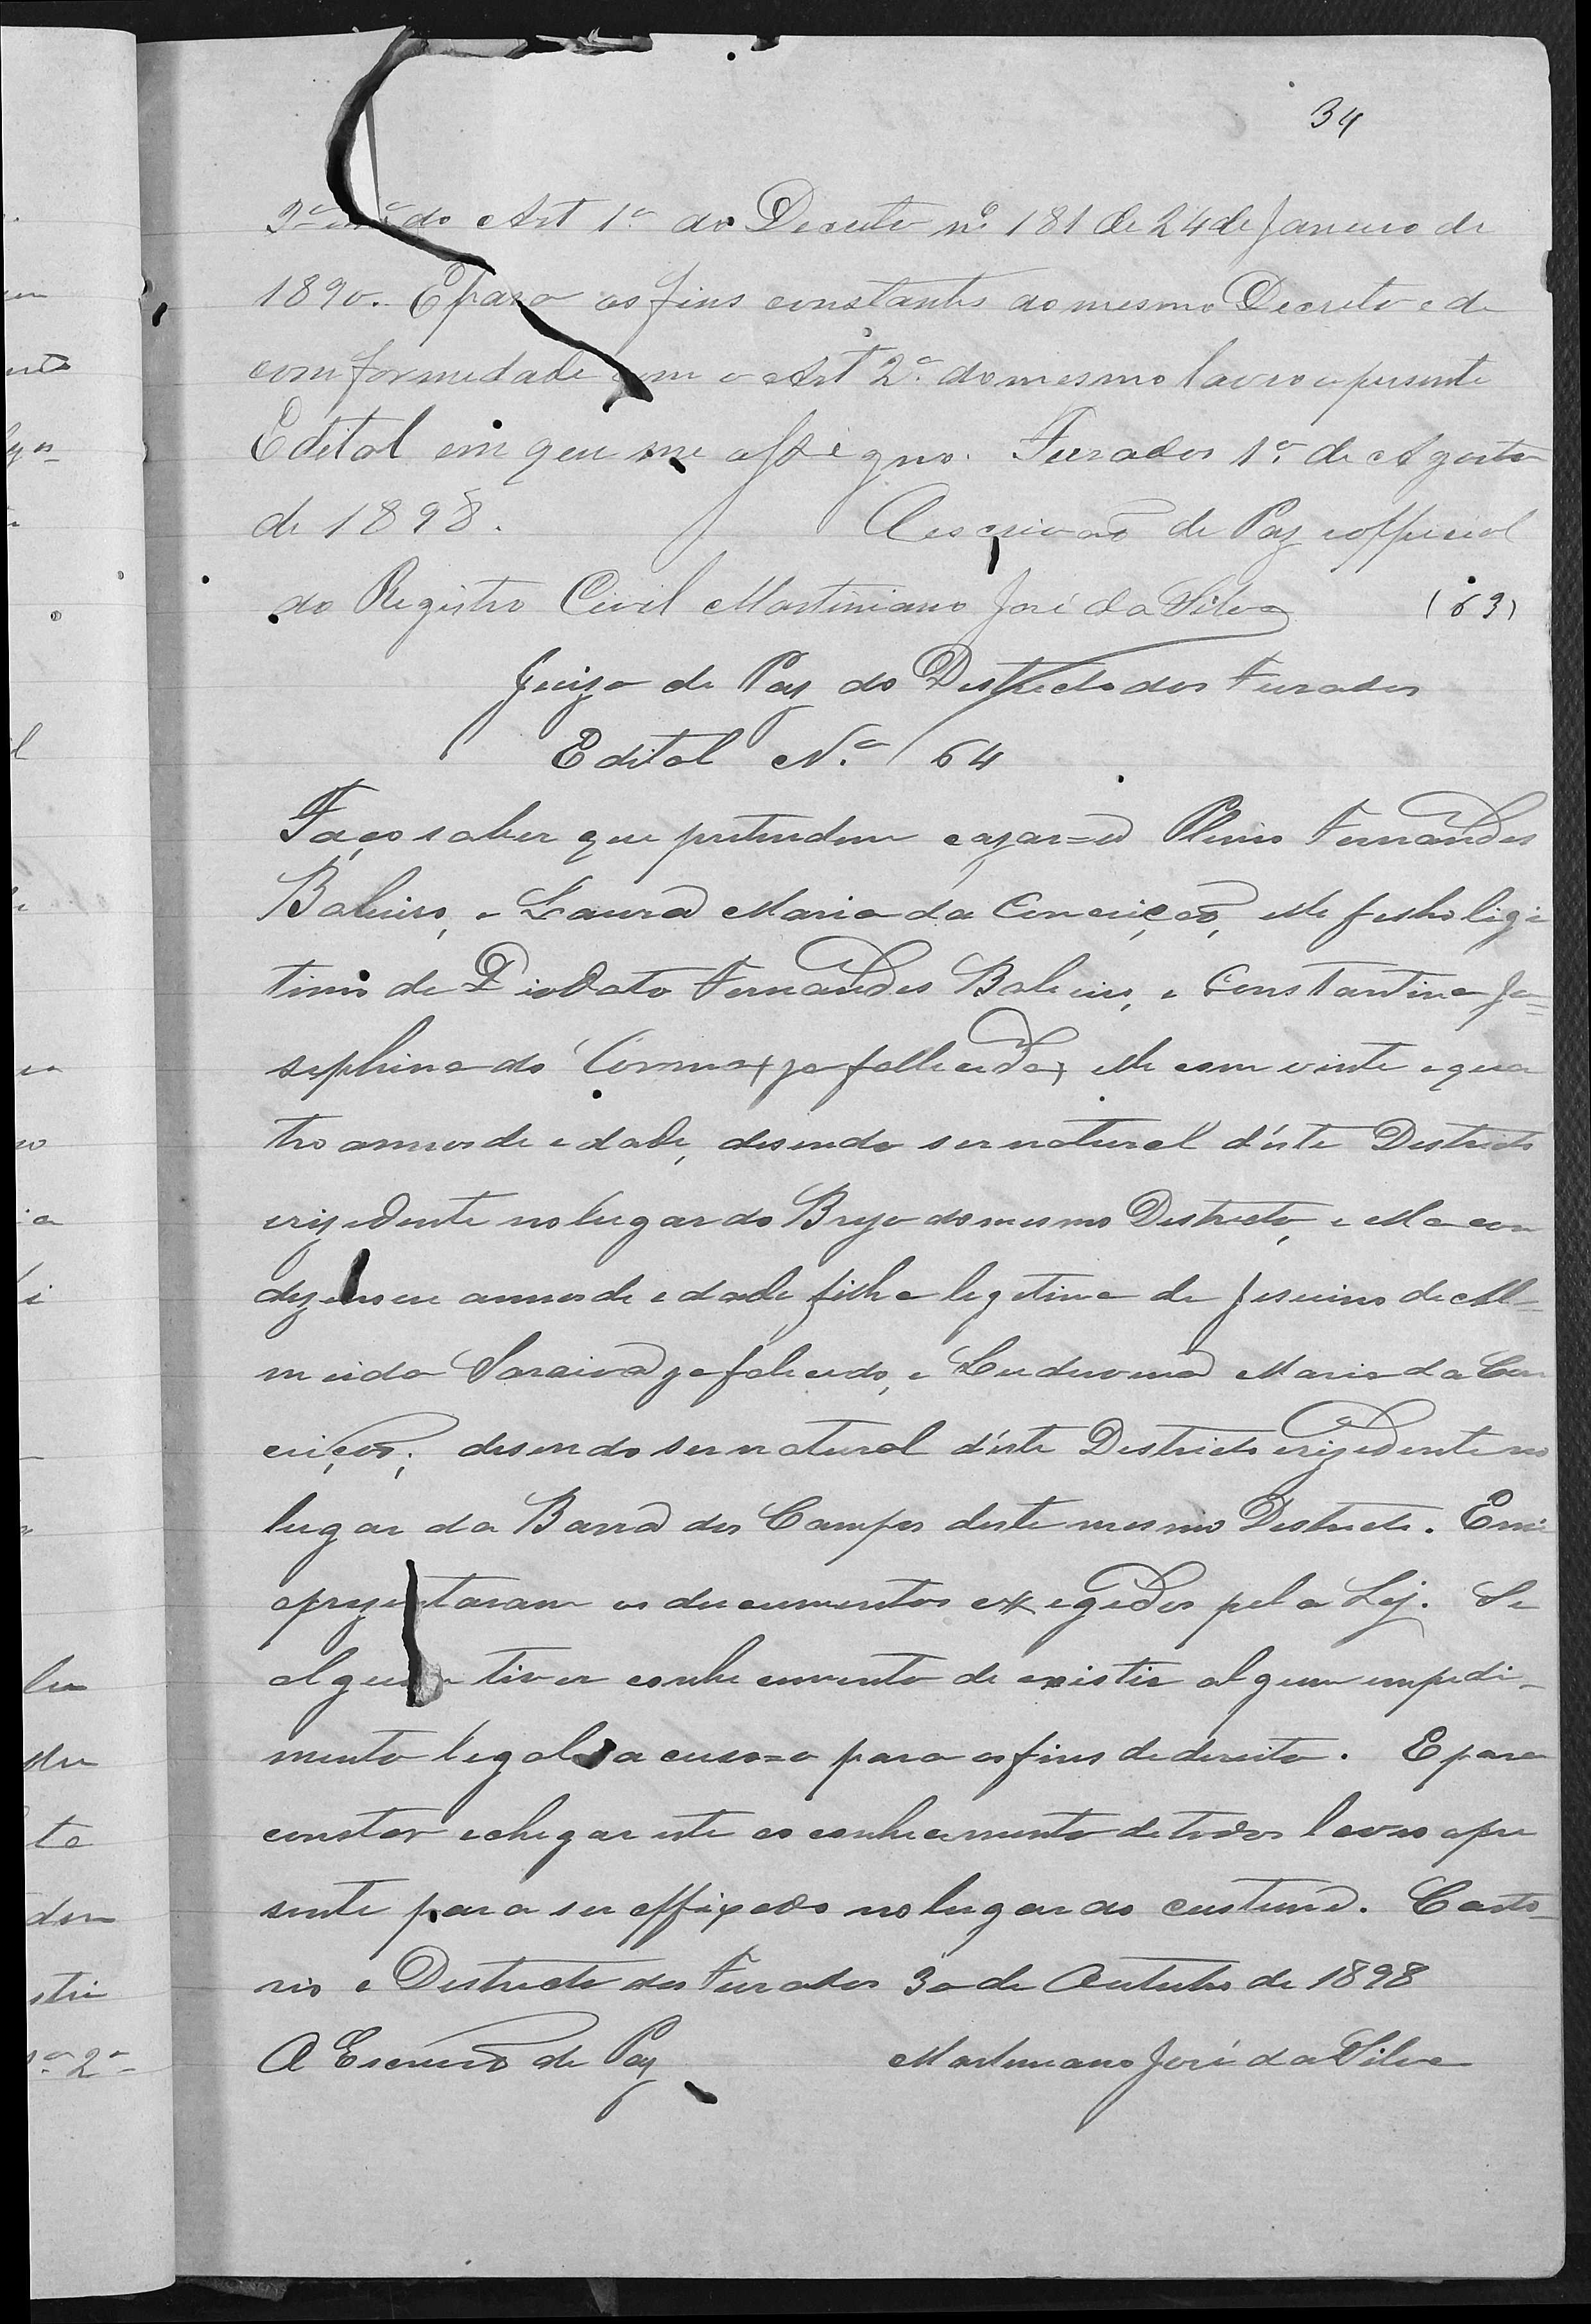 34
3º do Art 1º do Decreto nº 181 de 24 de Janeiro de
1890. E para os fins constantes do mesmo Decreto e de
comformedade com o Art 2º do mesmo lavro o presente
Edital em que me assigno. Furados 1º de Agosto
de 1898. O escrivaõ de Paz e official
do Registro Civil Martiniano José da Silva (63)
Juizo de Paz do Destricto dos Furados
Edital Nº 64
Faço saber que pretendem cazar=se Plinio Fernandes
Baleiro, e Laura Maria da Conceição, elle filho legi
timo de Diodato Fernandes Baleiro, e Constantina Jo=
sephina do Carmo ja fallecida, elle com vinte e qua
tro annos de edade, disendo ser natural d'este Destricto
e rizedente no lugar do Brejo do mesmo Destricto, e ella com
dezenove annos de edade, filha legetima de Jesuino de Al=
meida Saraiva ja falecido, e Maria da Con
ceição; disendo ser natural d'este Destricto e rizedente no
lugar da Barra dos Campos deste mesmo Destricto. E me
aprezentaram os documentos exegedos pela Lej. Se
alguem tiver conhecemento de existir algum impedi-
mento legal acuse=o para os fins de direito. E para
constar e chegar este ao conhecemento de todos lavro o pre
sente para ser affixado no lugar do custume. Carto-
rio e Destricto dos Furados 30 de Outubro de 1898
O Escrivaõ de Paz Martiniano José da Silva